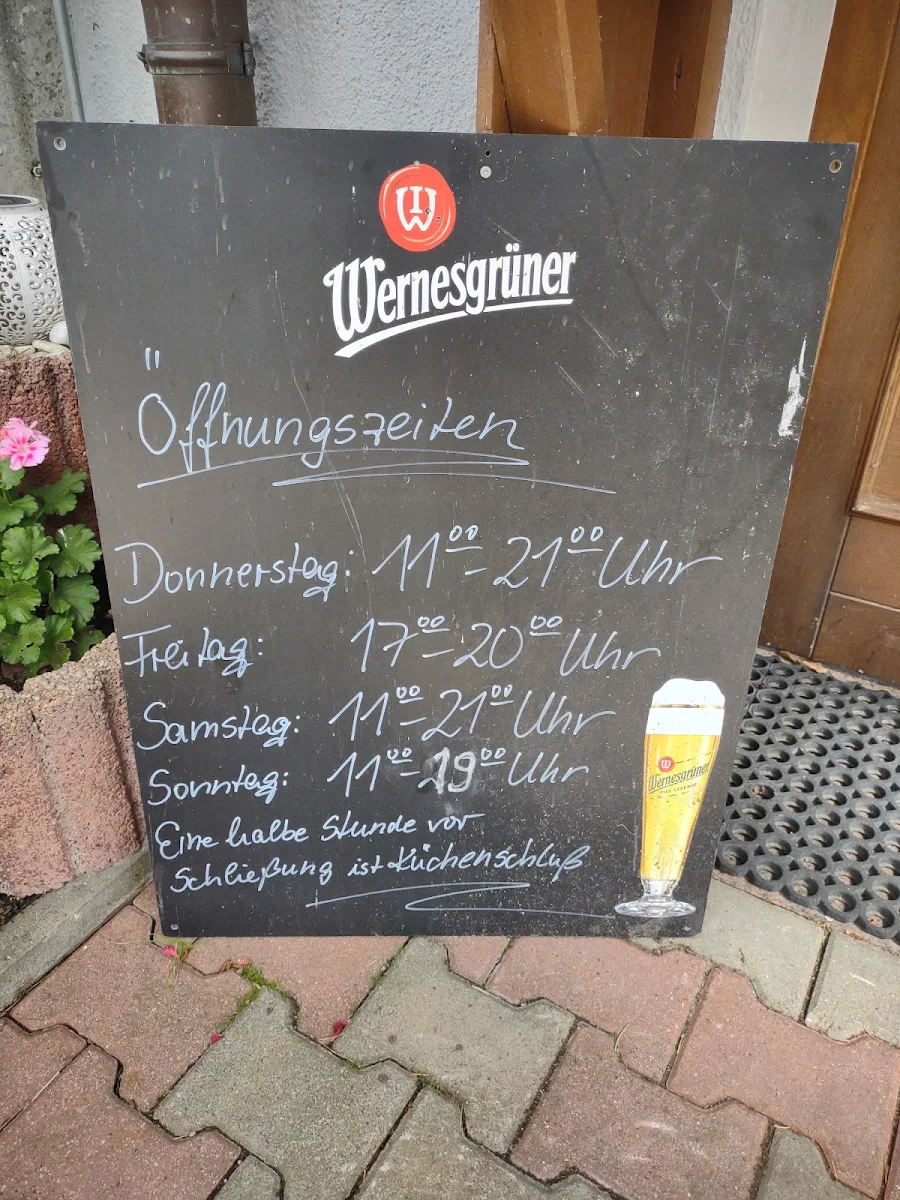 W
Wernesgrüner
Öffnungszeiten
Donnerstag: 11⁰⁰-21⁰⁰ Uhr
Freitag: 17⁰⁰-20⁰⁰ Uhr
Samstag: 11⁰⁰-21⁰⁰ Uhr
Sonntag: 11⁰⁰-19⁰⁰ Uhr
Eine halbe Stunde vor
Schließung ist Küchenschluß
W
Wernesgrüner
PILS LEGENDE